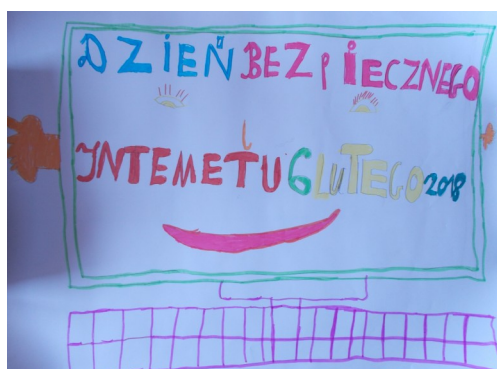 DZIEŃ BEZPIECZNEGO
INTEMETU 6 LUTEGO 2018